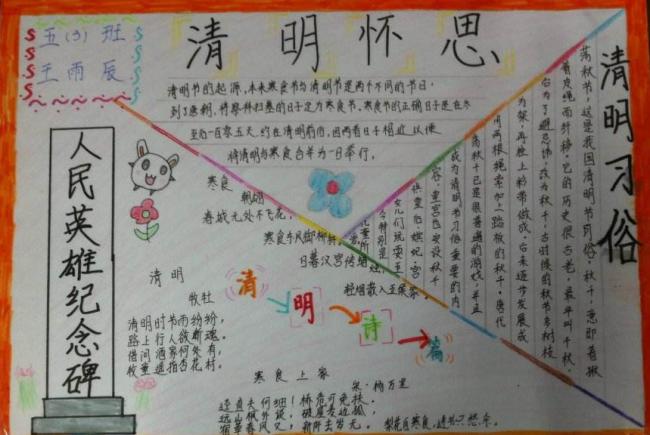 五(3)班
王雨辰
清明怀思
清明节的起源,本来寒食节与清明节是两个不同的节日,
到了唐朝,将祭拜扫墓的日子定为寒食节。寒食节的正确日子是在冬
至后一百零五天,约在清明前后,因两者日子相近,以便
将清明与寒食合并为一日举行。
人民英雄纪念碑
寒食
春城无处不飞花,
寒食东风御柳斜。
日暮汉宫传蜡烛,
轻烟散入五侯家。
清明
牧杜
清明时节雨纷纷,
路上行人欲断魂。
借问酒家何处有,
牧童遥指杏花村。
清
明
诗
篇
寒食上冢
宋·杨万里
迳直夫何细!桥危可免扶。
远山枫外淡,破屋麦边孤。
宿草春风又,新阡去岁无。
梨花自寒食,
清明习俗
荡秋千,这是我国清明节习俗。秋千,意即者揪
着皮绳而迁移。它的历史很古老,最早叫千秋,
后为了避忌讳,改为秋千。古时候的秋千多树枝
为架,再拴上彩带做成。后来逐步发展成
用两根绳索加上踏板的秋千。唐代
荡秋千已是很普遍的游戏,并且
成为清明节习俗重要的内
容。皇宫也安设秋千
供皇后、嫔妃、宫
女们玩耍至
今特别是
儿童所